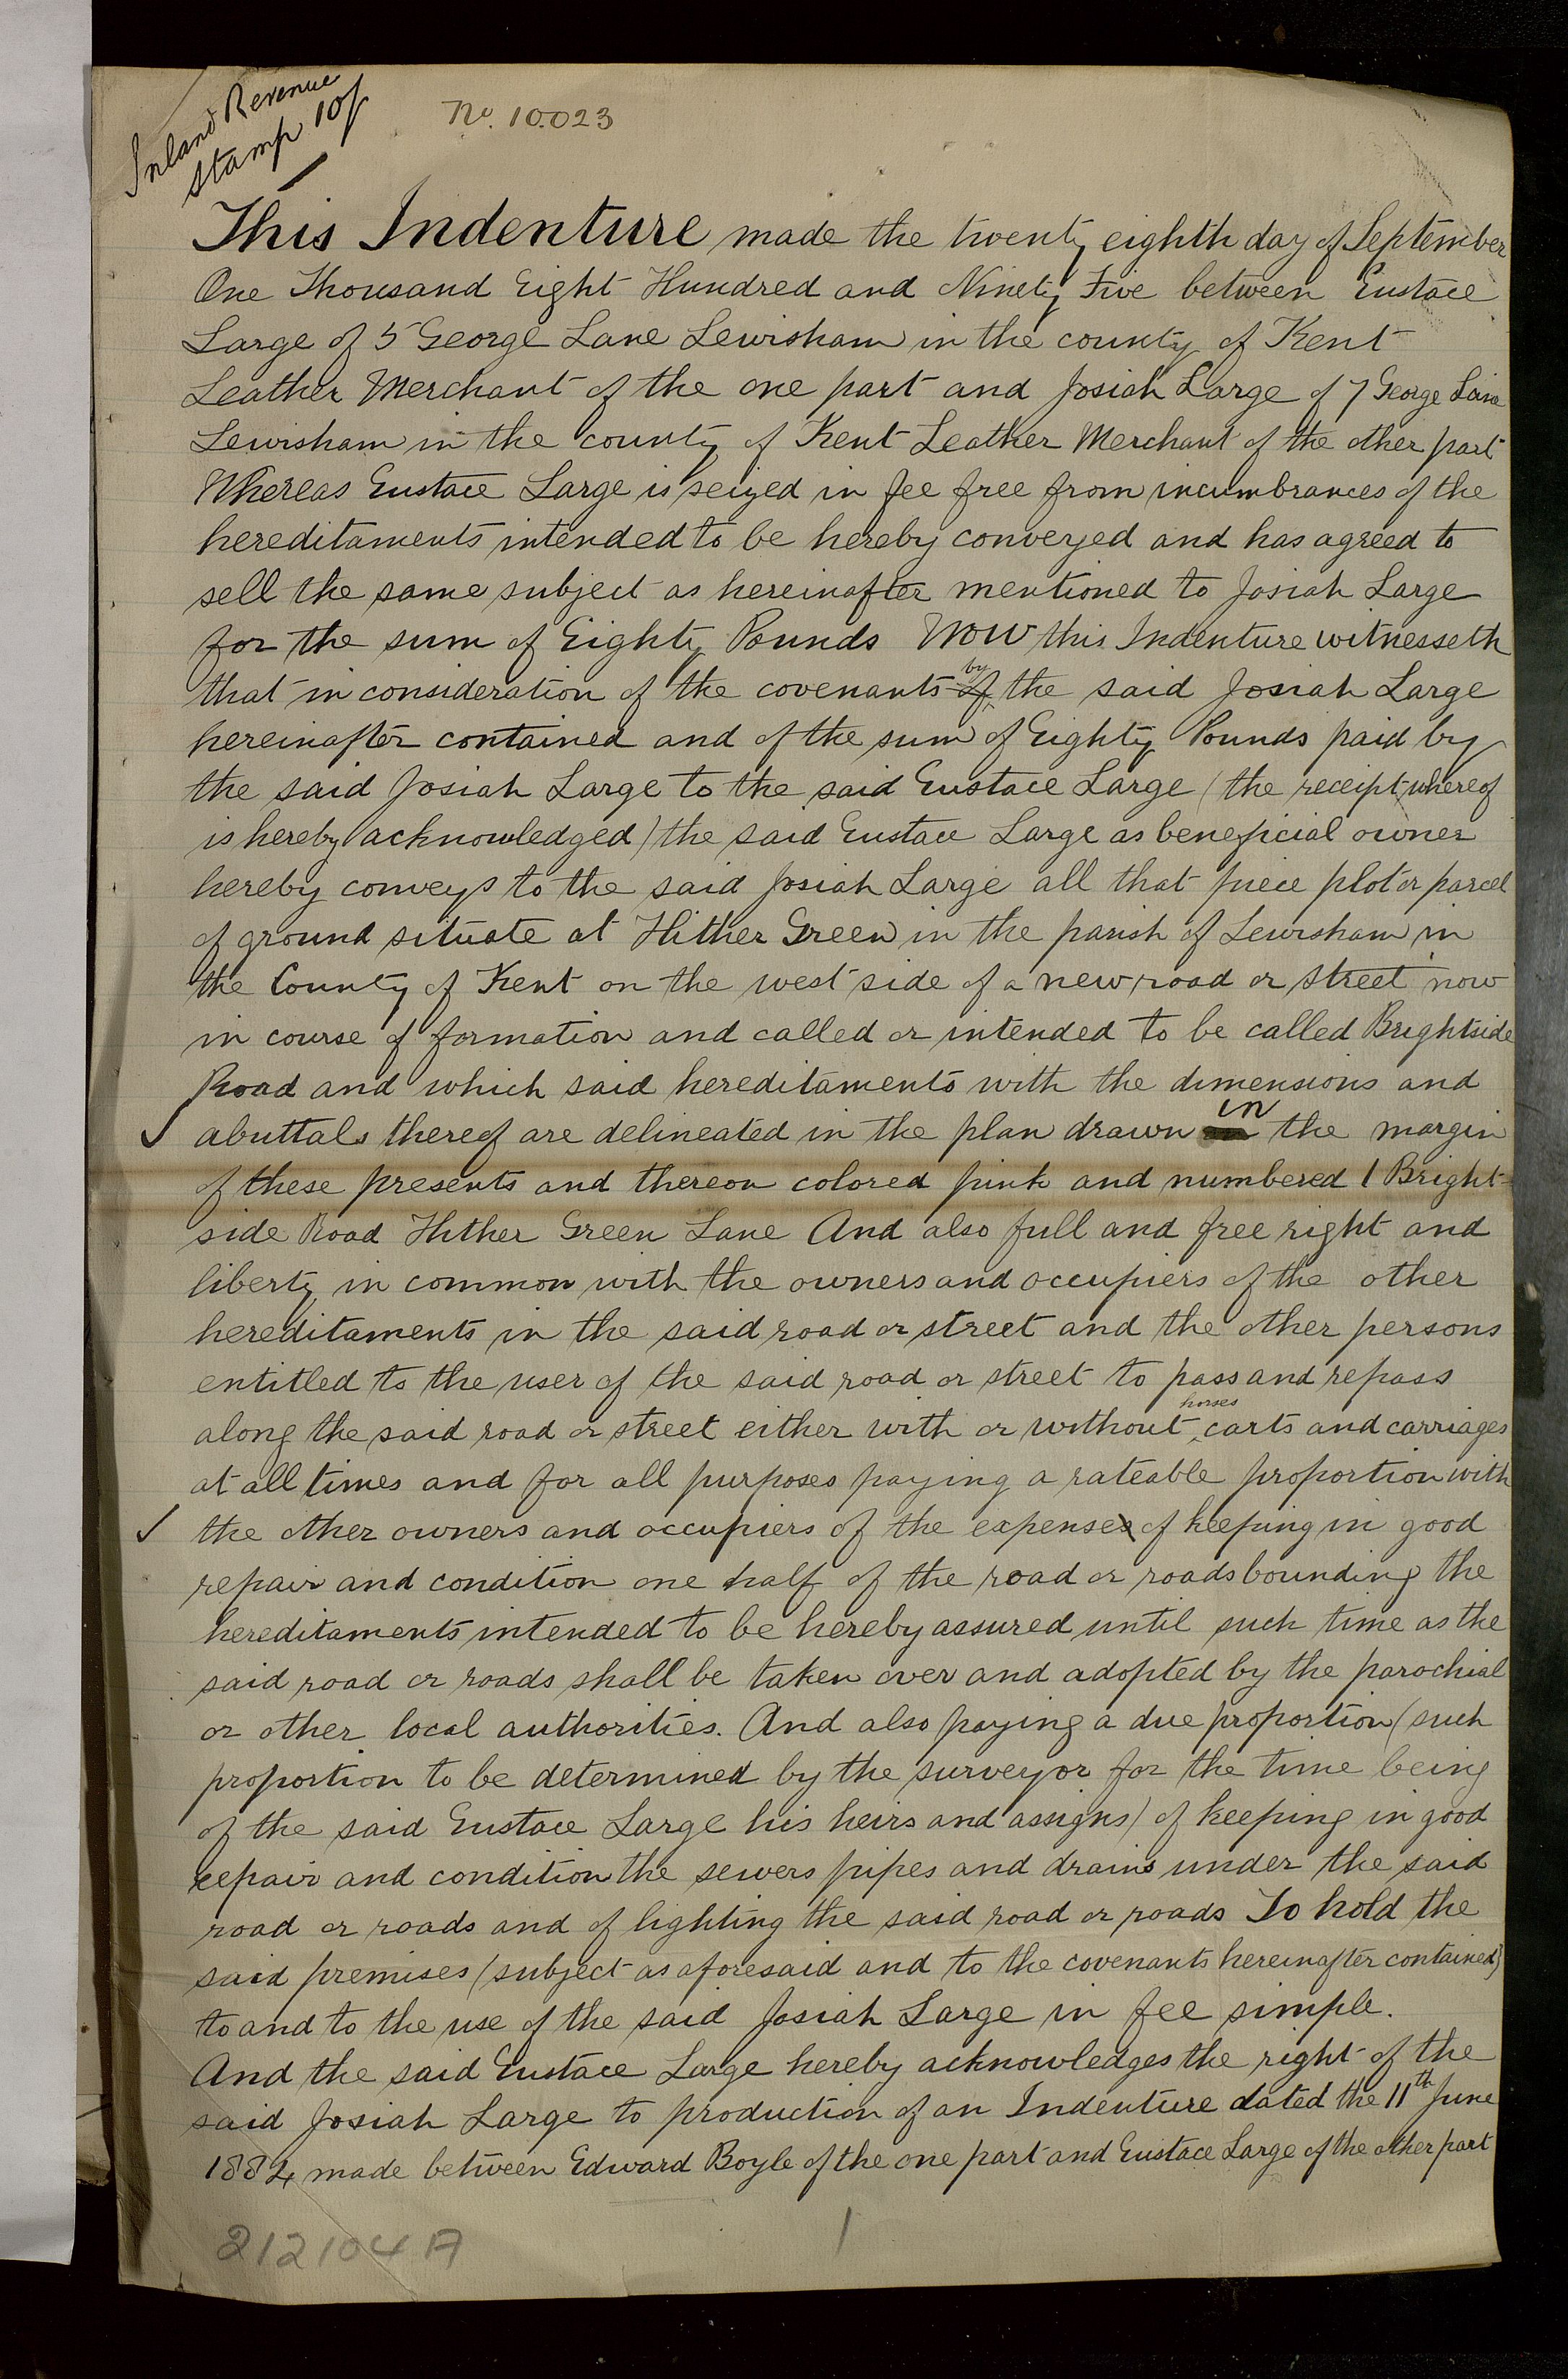 Inland Revenue
Stamp 10/
No. 10.023
This Indenture made the twenty eighth day of September
One Thousand Eight Hundred and Ninety Five between Eustace
Large of 5 George Lane Lewisham in the county of Kent
Leather Merchant of the one part and Josiah Large of 7 George Lane
Lewisham in the county of Kent Leather Merchant of the other part
Whereas Eustace Large is seized in fee free from incumbrances of the
hereditaments intended to be hereby conveyed and has agreed to
sell the same subject as hereinafter mentioned to Josiah Large
for the sum of Eighty Pounds Now this Indenture witnesseth
that in consideration of the covenants by the said Josiah Large
hereinafter contained and of the sum of Eighty Pounds paid by
the said Josiah Large to the said Eustace Large (the receipt whereof
is hereby acknowledged) the said Eustace Large as beneficial owner
hereby conveys to the said Josiah Large all that piece plot or parcel
of ground situate at Hither Green in the parish of Lewisham in
the County of Kent on the west side of a new road or street now
in course of formation and called or intended to be called Brightside
Road and which said hereditaments with the dimensions and
abuttals thereof are delineated in the plan drawn in the margin
of these presents and thereon colored pink and numbered 1 Bright-
side Road Hither Green Lane And also full and free right and
liberty in common with the owners and occupiers of the other
hereditaments in the said road or street and the other persons
entitled to the user of the said road or street to pass and repass
along the said road or street either with or without horses carts and carriages
at all times and for all purposes paying a rateable proportion with
the other owners and occupiers of the expense of keeping in good
repair and condition one half of the road or roads bounding the
hereditaments intended to be hereby assured until such time as the
said road or roads shall be taken over and adopted by the parochial
or other local authorities. And also paying a due proportion (such
proportion to be determined by the surveyor for the time being
of the said Eustace Large his heirs and assigns) of keeping in good
repair and condition the sewers pipes and drains under the said
road or roads and of lighting the said road or roads To hold the
said premises (subject as aforesaid and to the covenants hereinafter contained)
to and to the use of the said Josiah Large in fee simple.
And the said Eustace Large hereby acknowledges the right of the
said Josiah Large to production of an Indenture dated the 11th June
1884 made between Edward Boyle of the one part and Eustace Large of the other part
212104A
1